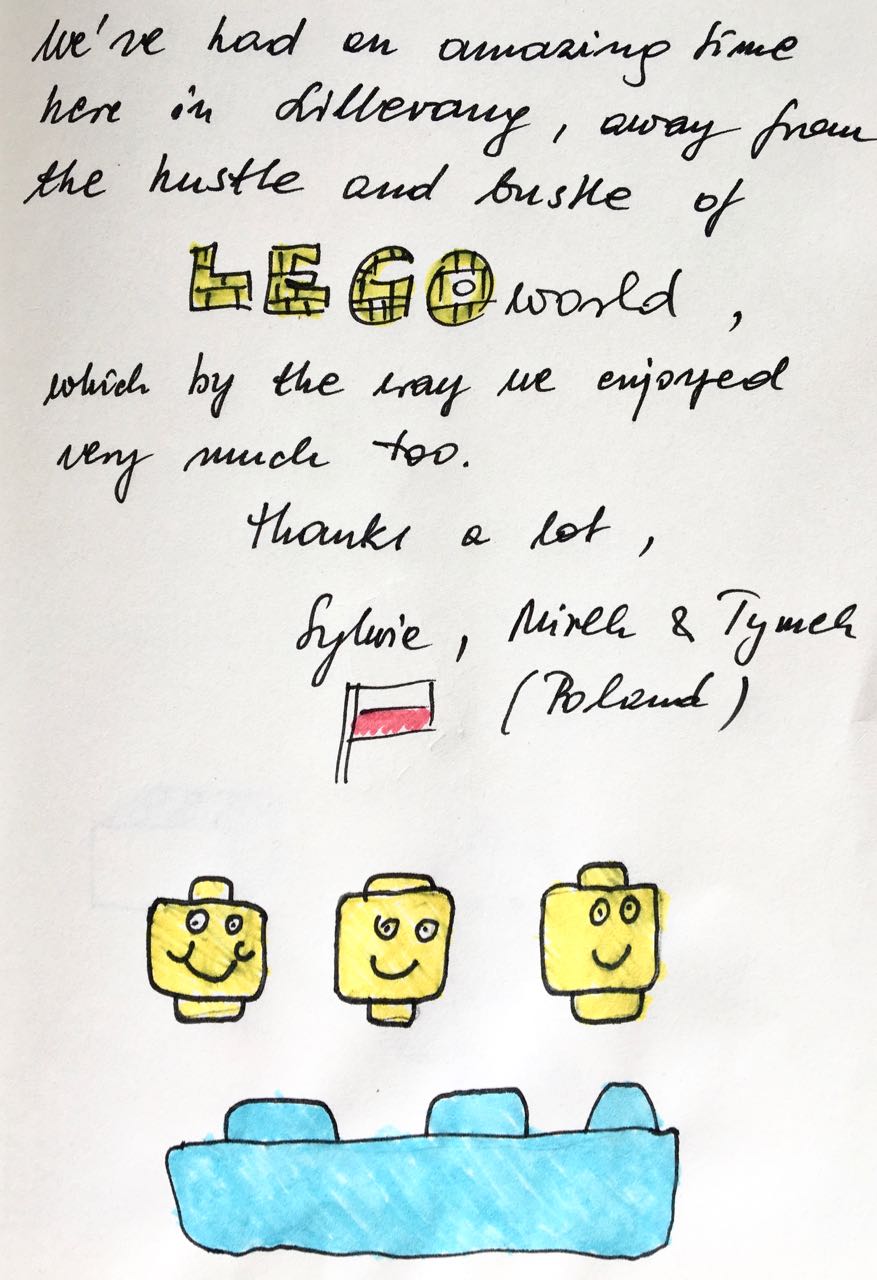 We've had an amazing time
here in Lillevang, away from
the hustle and bustle of
LEGO world,
which by the way we enjoyed
very much too.
Thanks a lot,
Sylwie, Mirek & Tymek
(Poland)